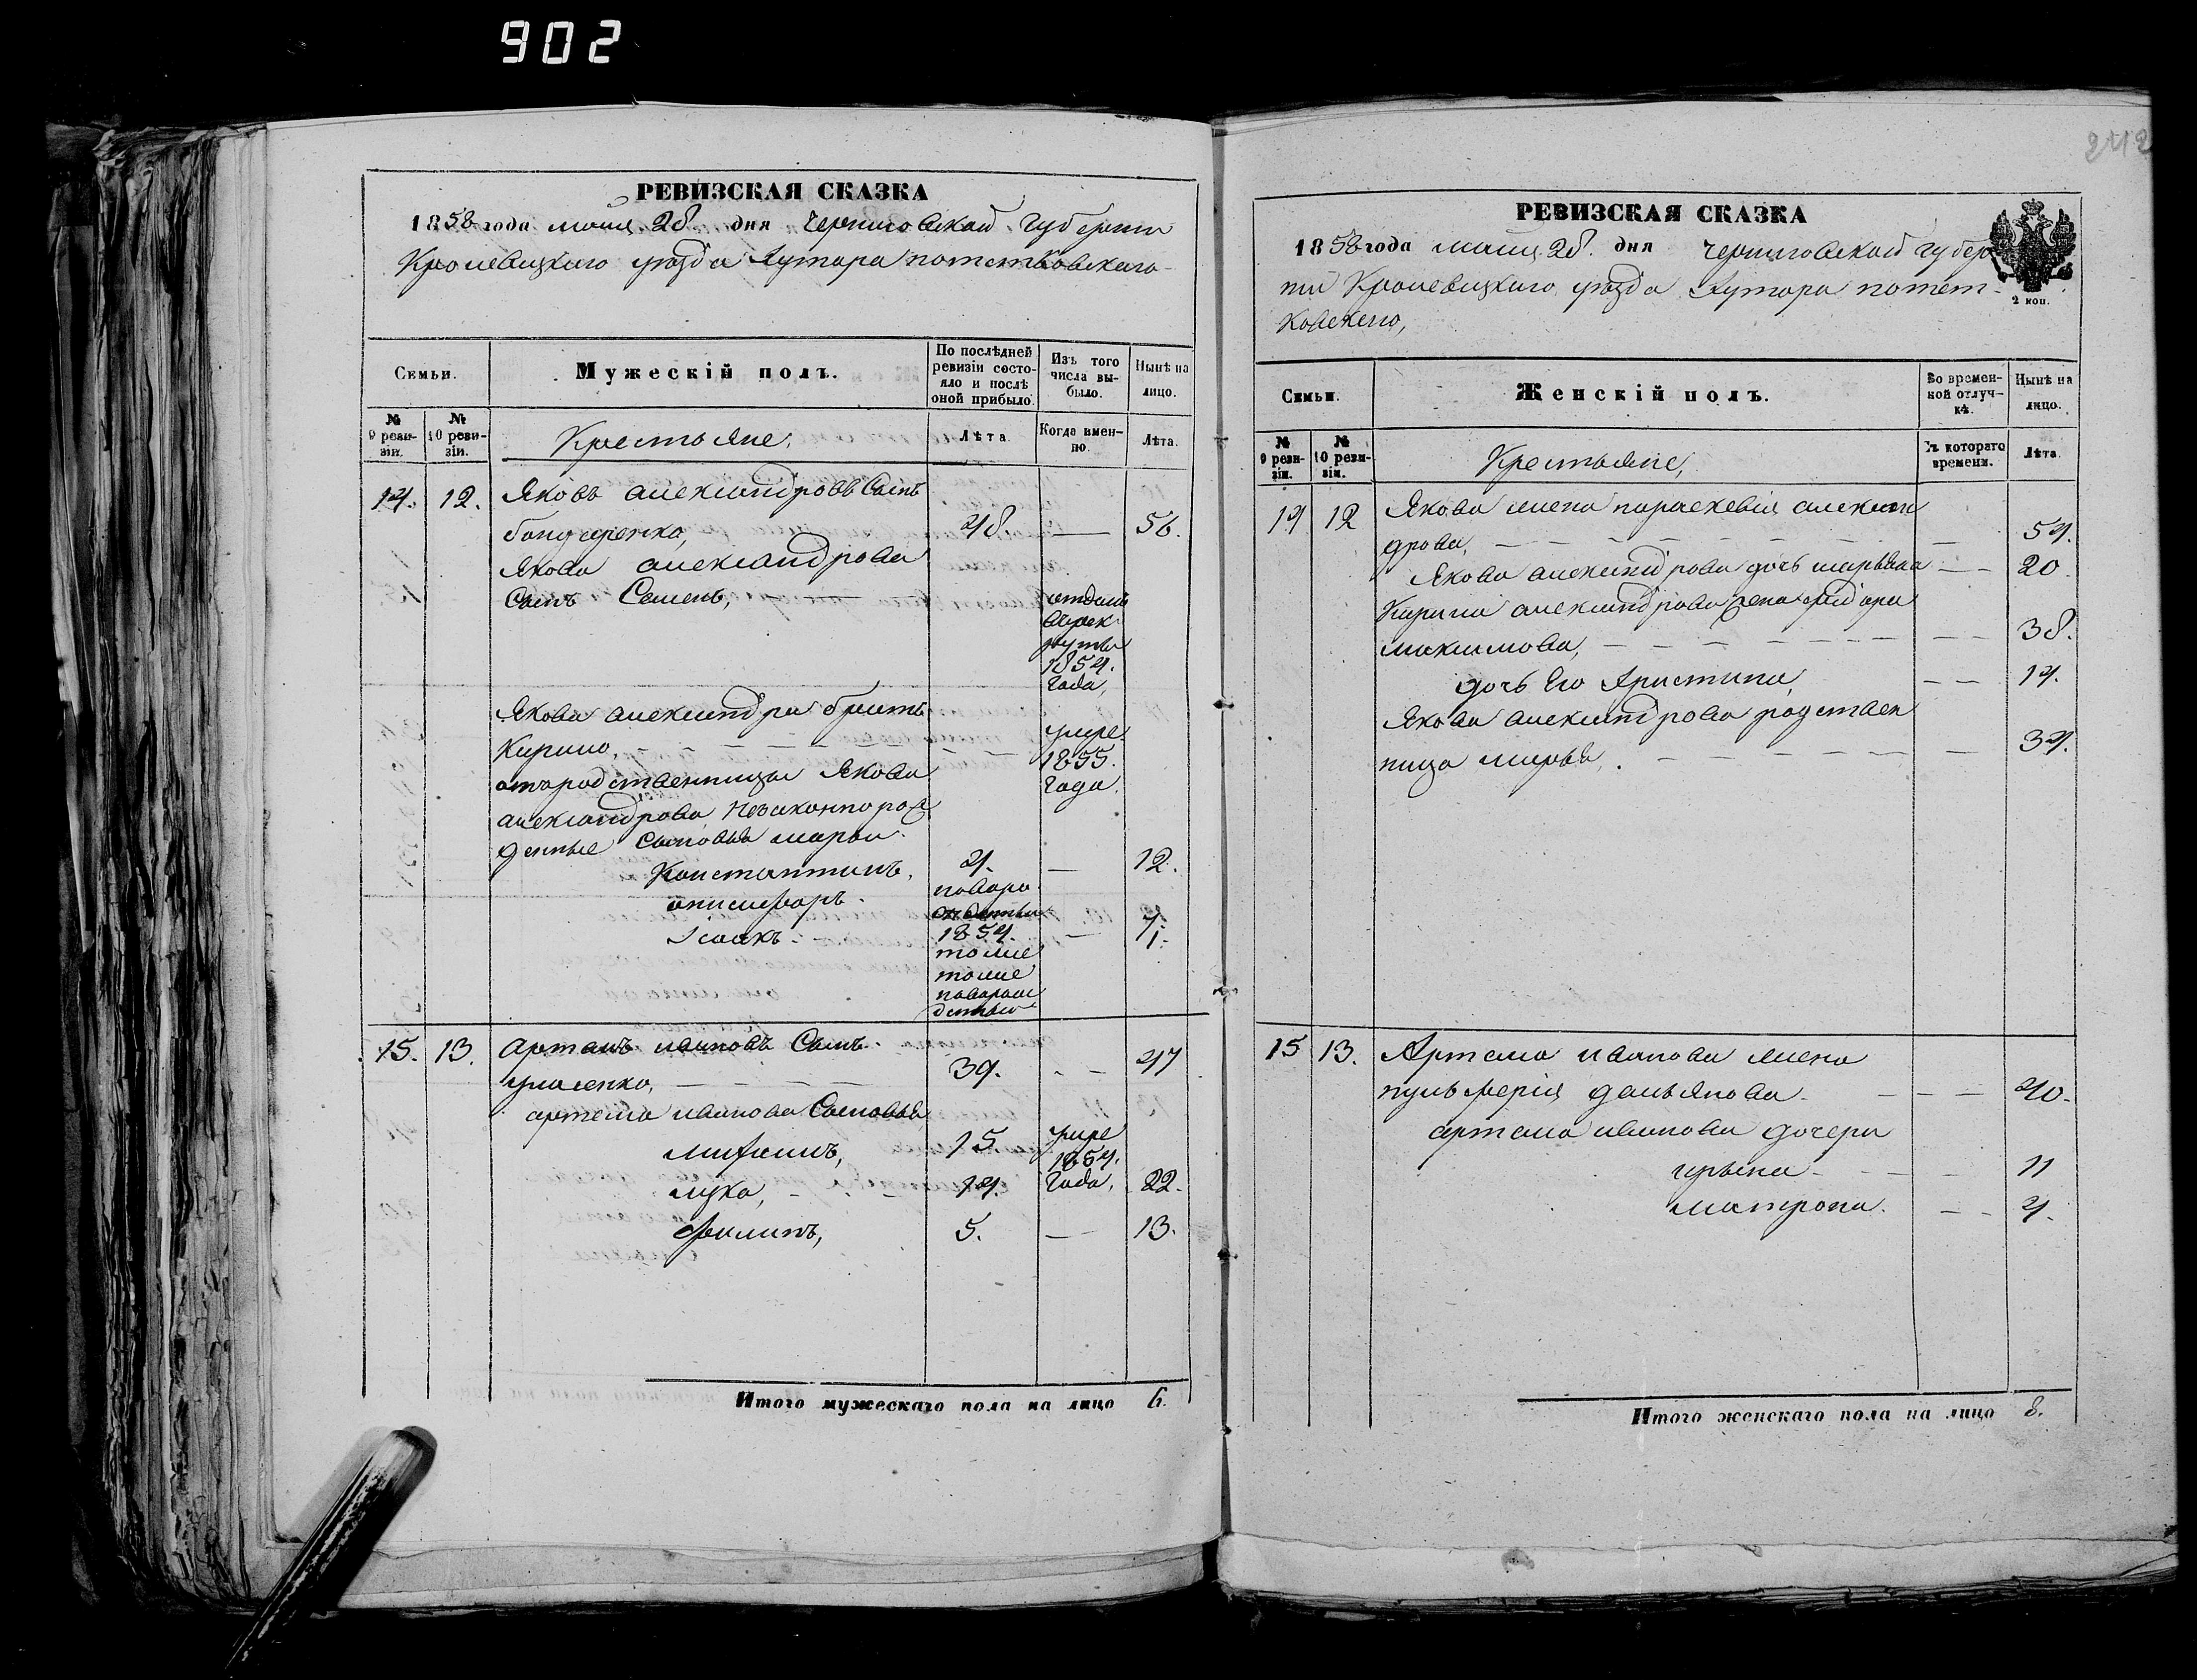 902
242
РЕВИЗСКАЯ СКАЗКА
1858 года маия 28. дня Черниговской Губернии
Кролевецкаго уѣзда Хутора потетковскаго
Семьи.
Мужескій полъ.
По послѣдней ревизіи состояло и послѣ оной прибыло.
Изъ того числа выбыло.
Нынѣ на лицо.
№ 9 ревизіи.
№ 10 ревизіи.
Крестьяне,
Лѣта.
Когда именно.
Лѣта.
14. 12. Яковъ александровъ Сынъ
бондаренко, 48. — 56.
Якова александрова
Сынъ Семенъ, отданъ
в рек
руты
1854.
Года,
Якова александра братъ
Кирило, умре
1855.
Года.
отъ родственницы Якова
александрова Незаконнорож
денные Сыновья марьи
Константинъ. 4. — 12.
анисифоръ. 7.
Ісаакъ. 1854. — 1.
тоже
тоже
15. 13. Артемъ ивановъ Сынъ
39. - - 47
артема иванова Сыновья
митрофанъ, 15. умре
1854.
лука, 14. Года, 22.
Филипъ, 5. — 13.
Итого мужескаго пола на лицо 6.
РЕВИЗСКАЯ СКАЗКА
1858 года маия 28. дня Черниговской Губер
нии Кролевецкаго уѣзда Хутора потет-
ковскаго,
2 коп.
Семьи.
Женскій полъ.
Во временной отлучкѣ.
Нынѣ на лицо.
№ 9 ревизіи.
№ 10 ревизіи.
Крестьяне,
Съ котораго времени.
Лѣта.
14 12 Якова жена параскевія алексан
дрова, — 54.
Якова александрова дочь марьяна — 20.
Кирила александрова жена феидора
максимова, — 38.
дочь Его Христина, — 14.
Якова александрова родствен
ница марья, — 34.
15 13. Артема иванова жена
пульхерія демьянова — 40.
артема иванова дочери
ирына — 11
матрона. — 4.
Итого женскаго пола на лицо 8.